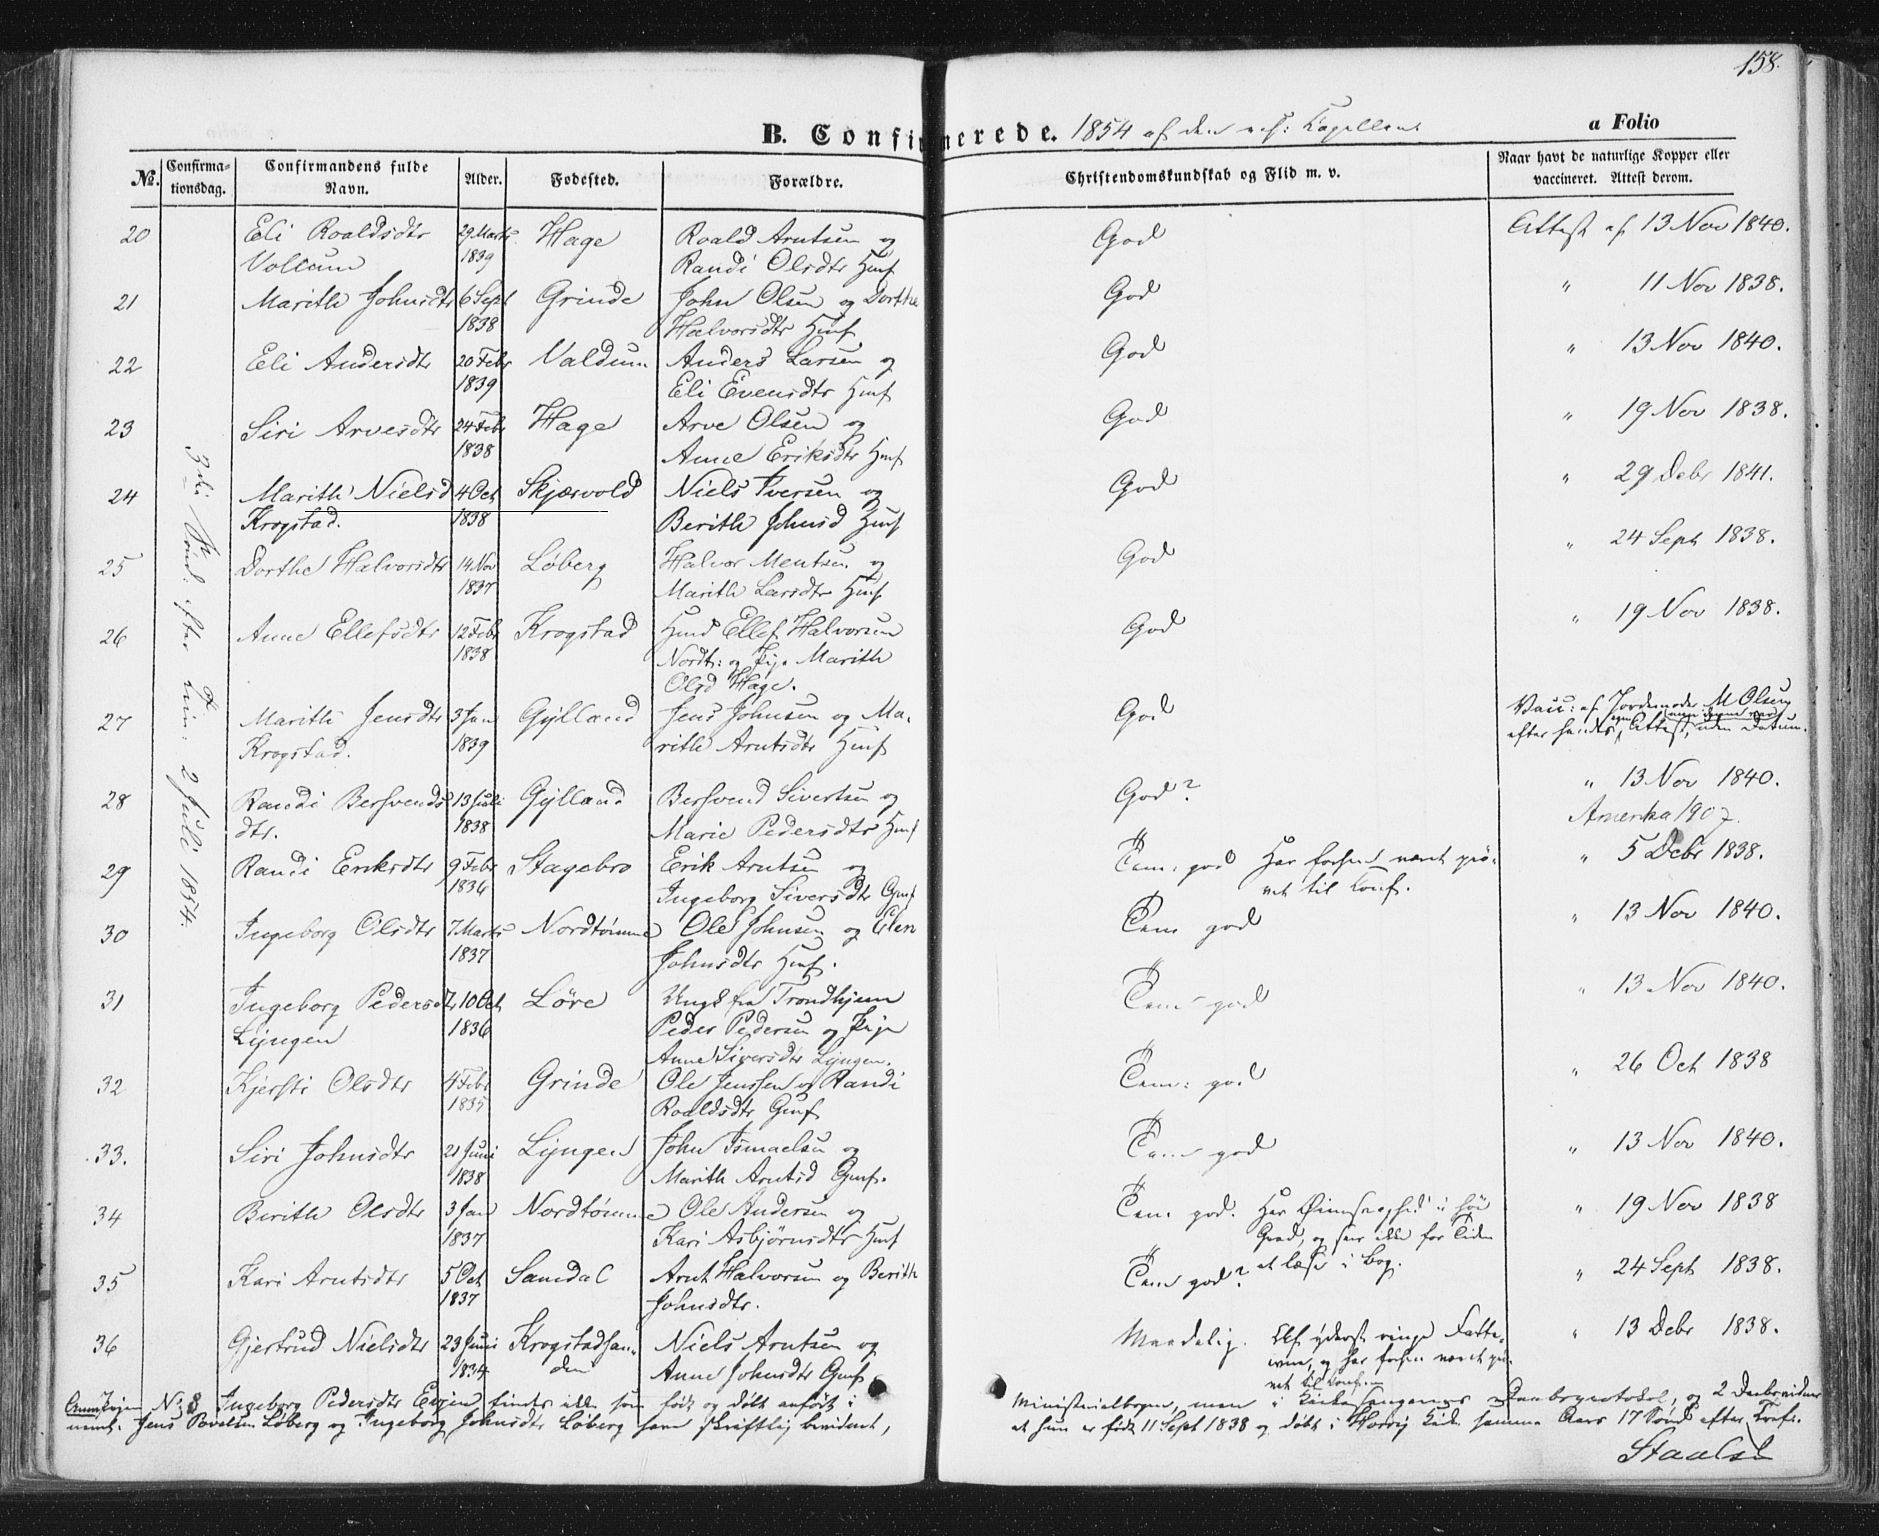 158.
B. Confirmerede. 1854 af den res: Kapellan
a Folio
No. Confirmationsdag. Confirmandens fulde Navn. Alder. Fødested. Forældre. Christendomskundskab og Flid m. v. Naar havt de naturlige Kopper eller vaccineret. Attest derom.
3die Sønd: efter Trin: 2 Juli 1854.
20 Eli Roaldsdtr 29 Marts Hage Roald Arntsen og God Attest af 13 Nov 1840.
Vollum 1839 Randi Olsdtr Hmf
21 Marith Johnsdtr 6 Sept Grinde John Olsen og Dorthe God " 11 Nov 1838.
1838 Halvorsdtr Hmf
22 Eli Andersdtr 20 Febr Valdum Anders Larsen og God " 13 Nov 1840.
1839 Eli Evensdtr Hmf
23 Siri Arvesdtr 24 Febr Hage Arve Olsen og God " 19 Nov 1838.
1838 Anne Eriksdtr Hmf
24 Marith Nielsd 4 Oct Skjærvold Niels Iversen og God " 29 Debr 1841.
Krogstad. 1838 Berith Johnsd Hmf
25 Dorthe Halvorsdtr 14 Nov Løberg Halvor Mentsen og God " 24 Sept 1838.
1837 Marith Larsdtr Hmf
26 Anne Ellefsdtr 12 Febr Krogstad Hmd Ellef Halvorsen God " 19 Nov 1838.
1838 Nordtr: og Pige Marith
Olsd Hage.
27 Marith Jensdtr 3 Jan Gylland Jens Johnsen og Ma- God Vacc: af Jordemoder M Olsen
Krogstad. 1839 rith Arntsdtr Hmf efter hendes Attest, uden Datum.
28 Randi Bersvends 13 Juli Gylland Bersvend Sivertsen og God? " 13 Nov 1840.
dtr. 1838 Marie Pedersdtr Hmf Amerika 1907.
29 Randi Eriksdtr 9 Febr Stagebro Erik Arntsen og Tem: god Har forhen været prø- " 5 Debr 1838.
1836 Ingeborg Siversdtr Gmf vet til Conf.
30 Ingeborg Olsdtr 7 Marts Nordtømme Ole Johnsen og Elen Tem god " 13 Nov 1840.
1837 Johnsdtr Hmf.
31 Ingeborg Pedersdtr 10 Oct Løre Ungk fra Trondhjem Tem god " 13 Nov 1840.
Lyngen 1836 Peder Pedersen og Pige
Anne Siversdtr Lyngen.
32 Kjersti Olsdtr 4 Febr Grinde Ole Jenssen og Randi Tem: god " 26 Oct 1838
1835 Roaldsdtr Gmf
33. Siri Johnsdtr 21 Juni Lyngen John Ismaelsen og Tem god " 13 Nov 1840.
1838 Marith Arntsd Gmf.
34 Berith Olsdtr 3 Jan Nordtømme Ole Andersen og Tem. god. Har Øiensvaghed i høi " 19 Nov 1838
1837 Kari Asbjørnsdtr Hmf Grad, og seer ikke for Tiden
at læse i Bog.
35 Kari Arntsdtr 5 Oct Samdal Arnt Halvorsen og Berith Tem god? " 24 Sept 1838.
1837 Johnsdtr.
36 Gjertrud Nielsdtr 23 Juni Krogstadsan- Niels Arntsen og Maadelig. Af yderst ringe Fatte- " 13 Debr 1838.
1834 den Anne Johnsdtr Gmf evne, og har forhen været prø-
vet til Conf.
Anm: Pigen No: 8 Ingeborg Pedersdtr Engen findes ikke som født og døbt anført i Ministerialbogen, men i Kirkesangerens Daabsprotokol, og 2 Daabsvidner
neml. Jens Povelsen Løberg og Ingeborg Johnsdtr Løberg have skriftlig bevidnet, at hun er født 11 Sept 1838 og døbt i Horrig Kirke samme Aars 17 Sønd efter Trefr.
Staalsen